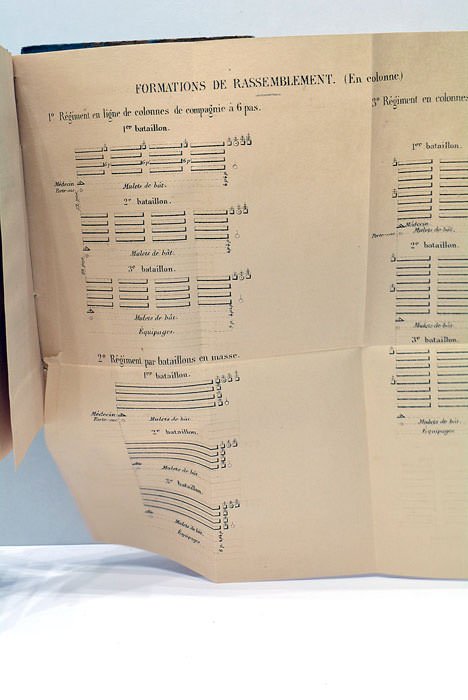 FORMATIONS DE RASSEMBLEMENT. (En colonne.)
1º Régiment en ligne de colonnes de compagnie à 6 pas.
1er bataillon.
6 p. 6 p. 6 p.
Médecin
Mulets de bât.
2e bataillon.
Mulets de bât.
3e bataillon.
Mulets de bât.
Équipages.
2º Régiment par bataillons en masse.
1er bataillon.
Médecin
Mulets de bât.
2e bataillon.
Mulets de bât.
3e bataillon.
Mulets de bât.
Équipages
3º Régiment en colonnes
1er bataillon.
Médecin
Mulets de bât.
2e bataillon.
Mulets de bât.
3e bataillon.
Mulets de bât.
Équipages